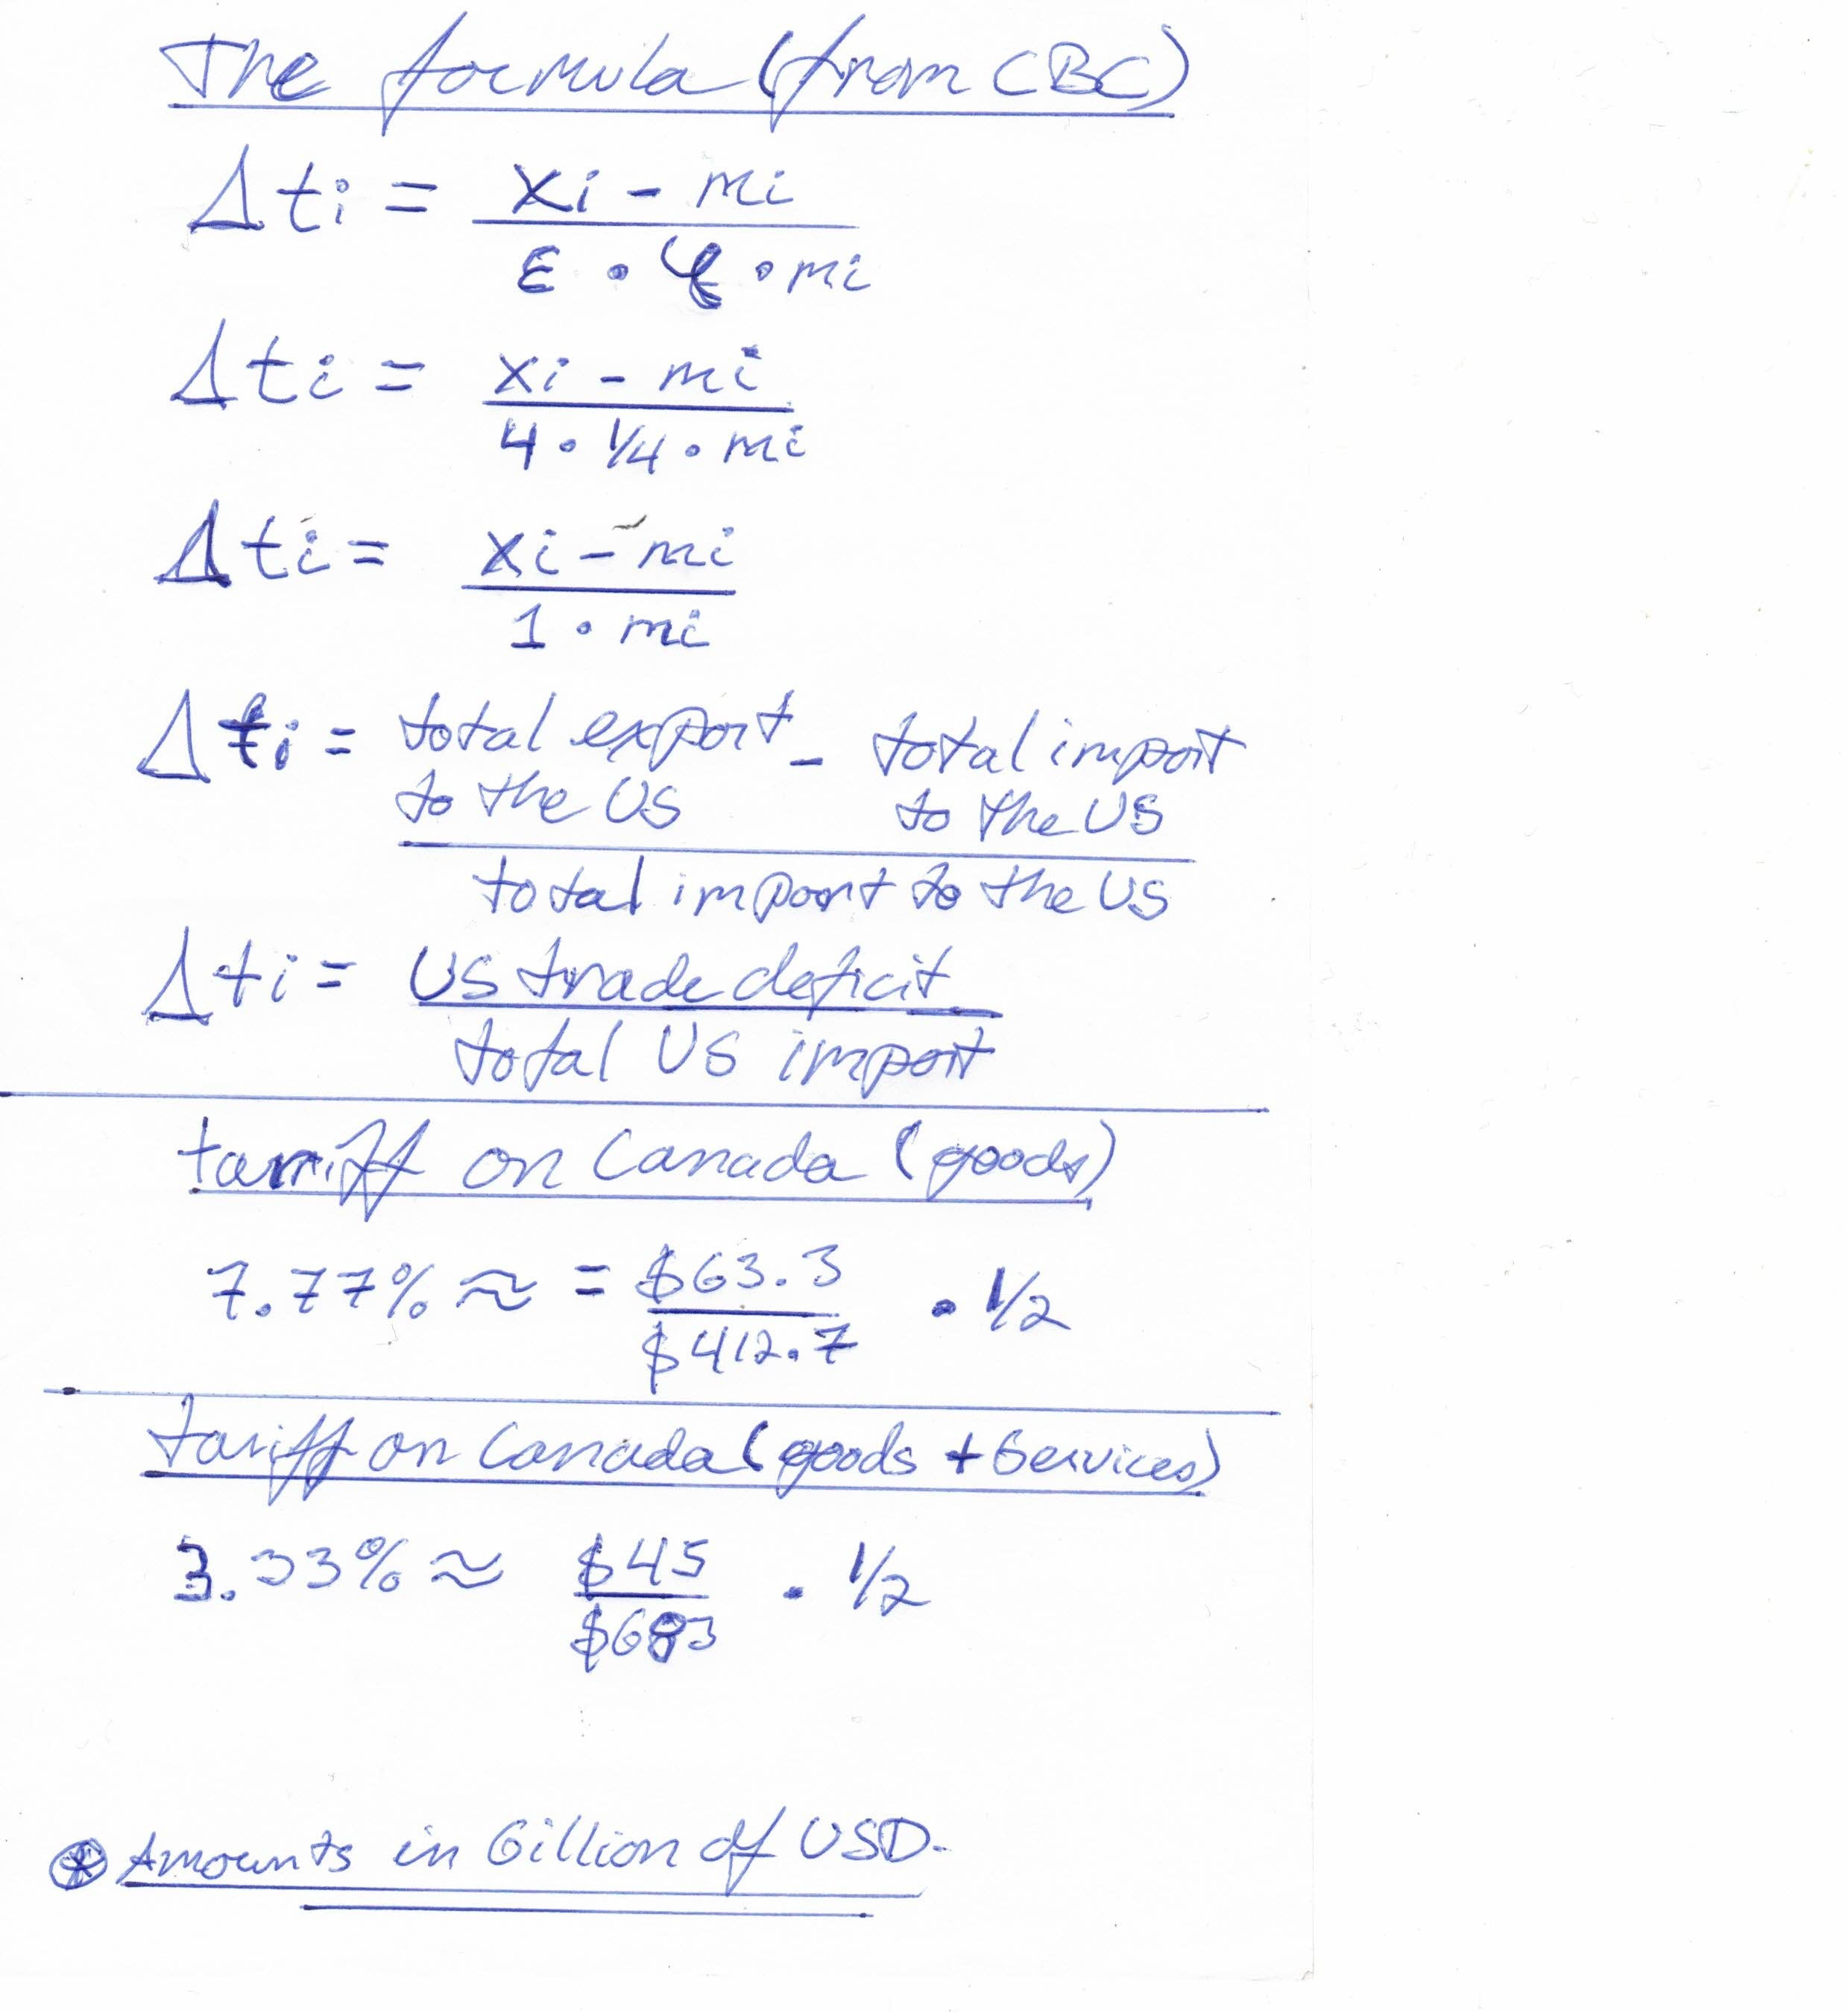 The formula (from CBC)
Δti = xi - mi
ε • φ • mi
Δti = xi - mi
4 • 1/4 • mi
Δti = xi - mi
1 • mi
Δti = total export - total import
to the US to the US
total import to the US
Δti = US trade deficit
total US import
tarriff on Canada (goods)
7.77% ≈ = $63.3 • 1/2
$412.7
tariff on Canada (goods + services)
3.33% ≈ $45 • 1/2
$683
* Amounts in billion of USD.